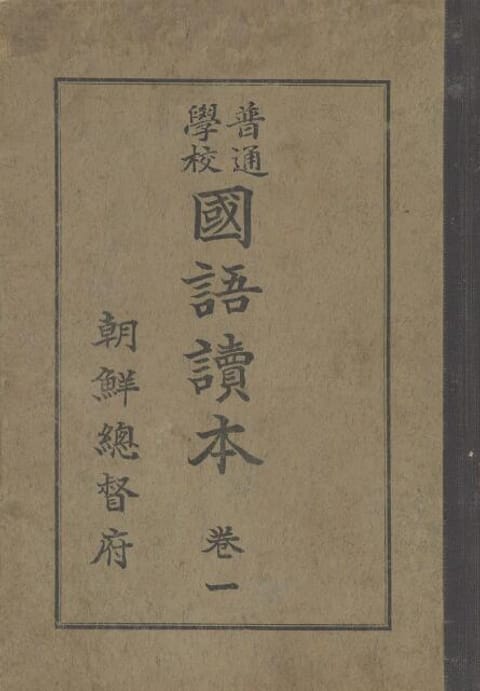 普通
學校
國語讀本
卷一
朝鮮總督府